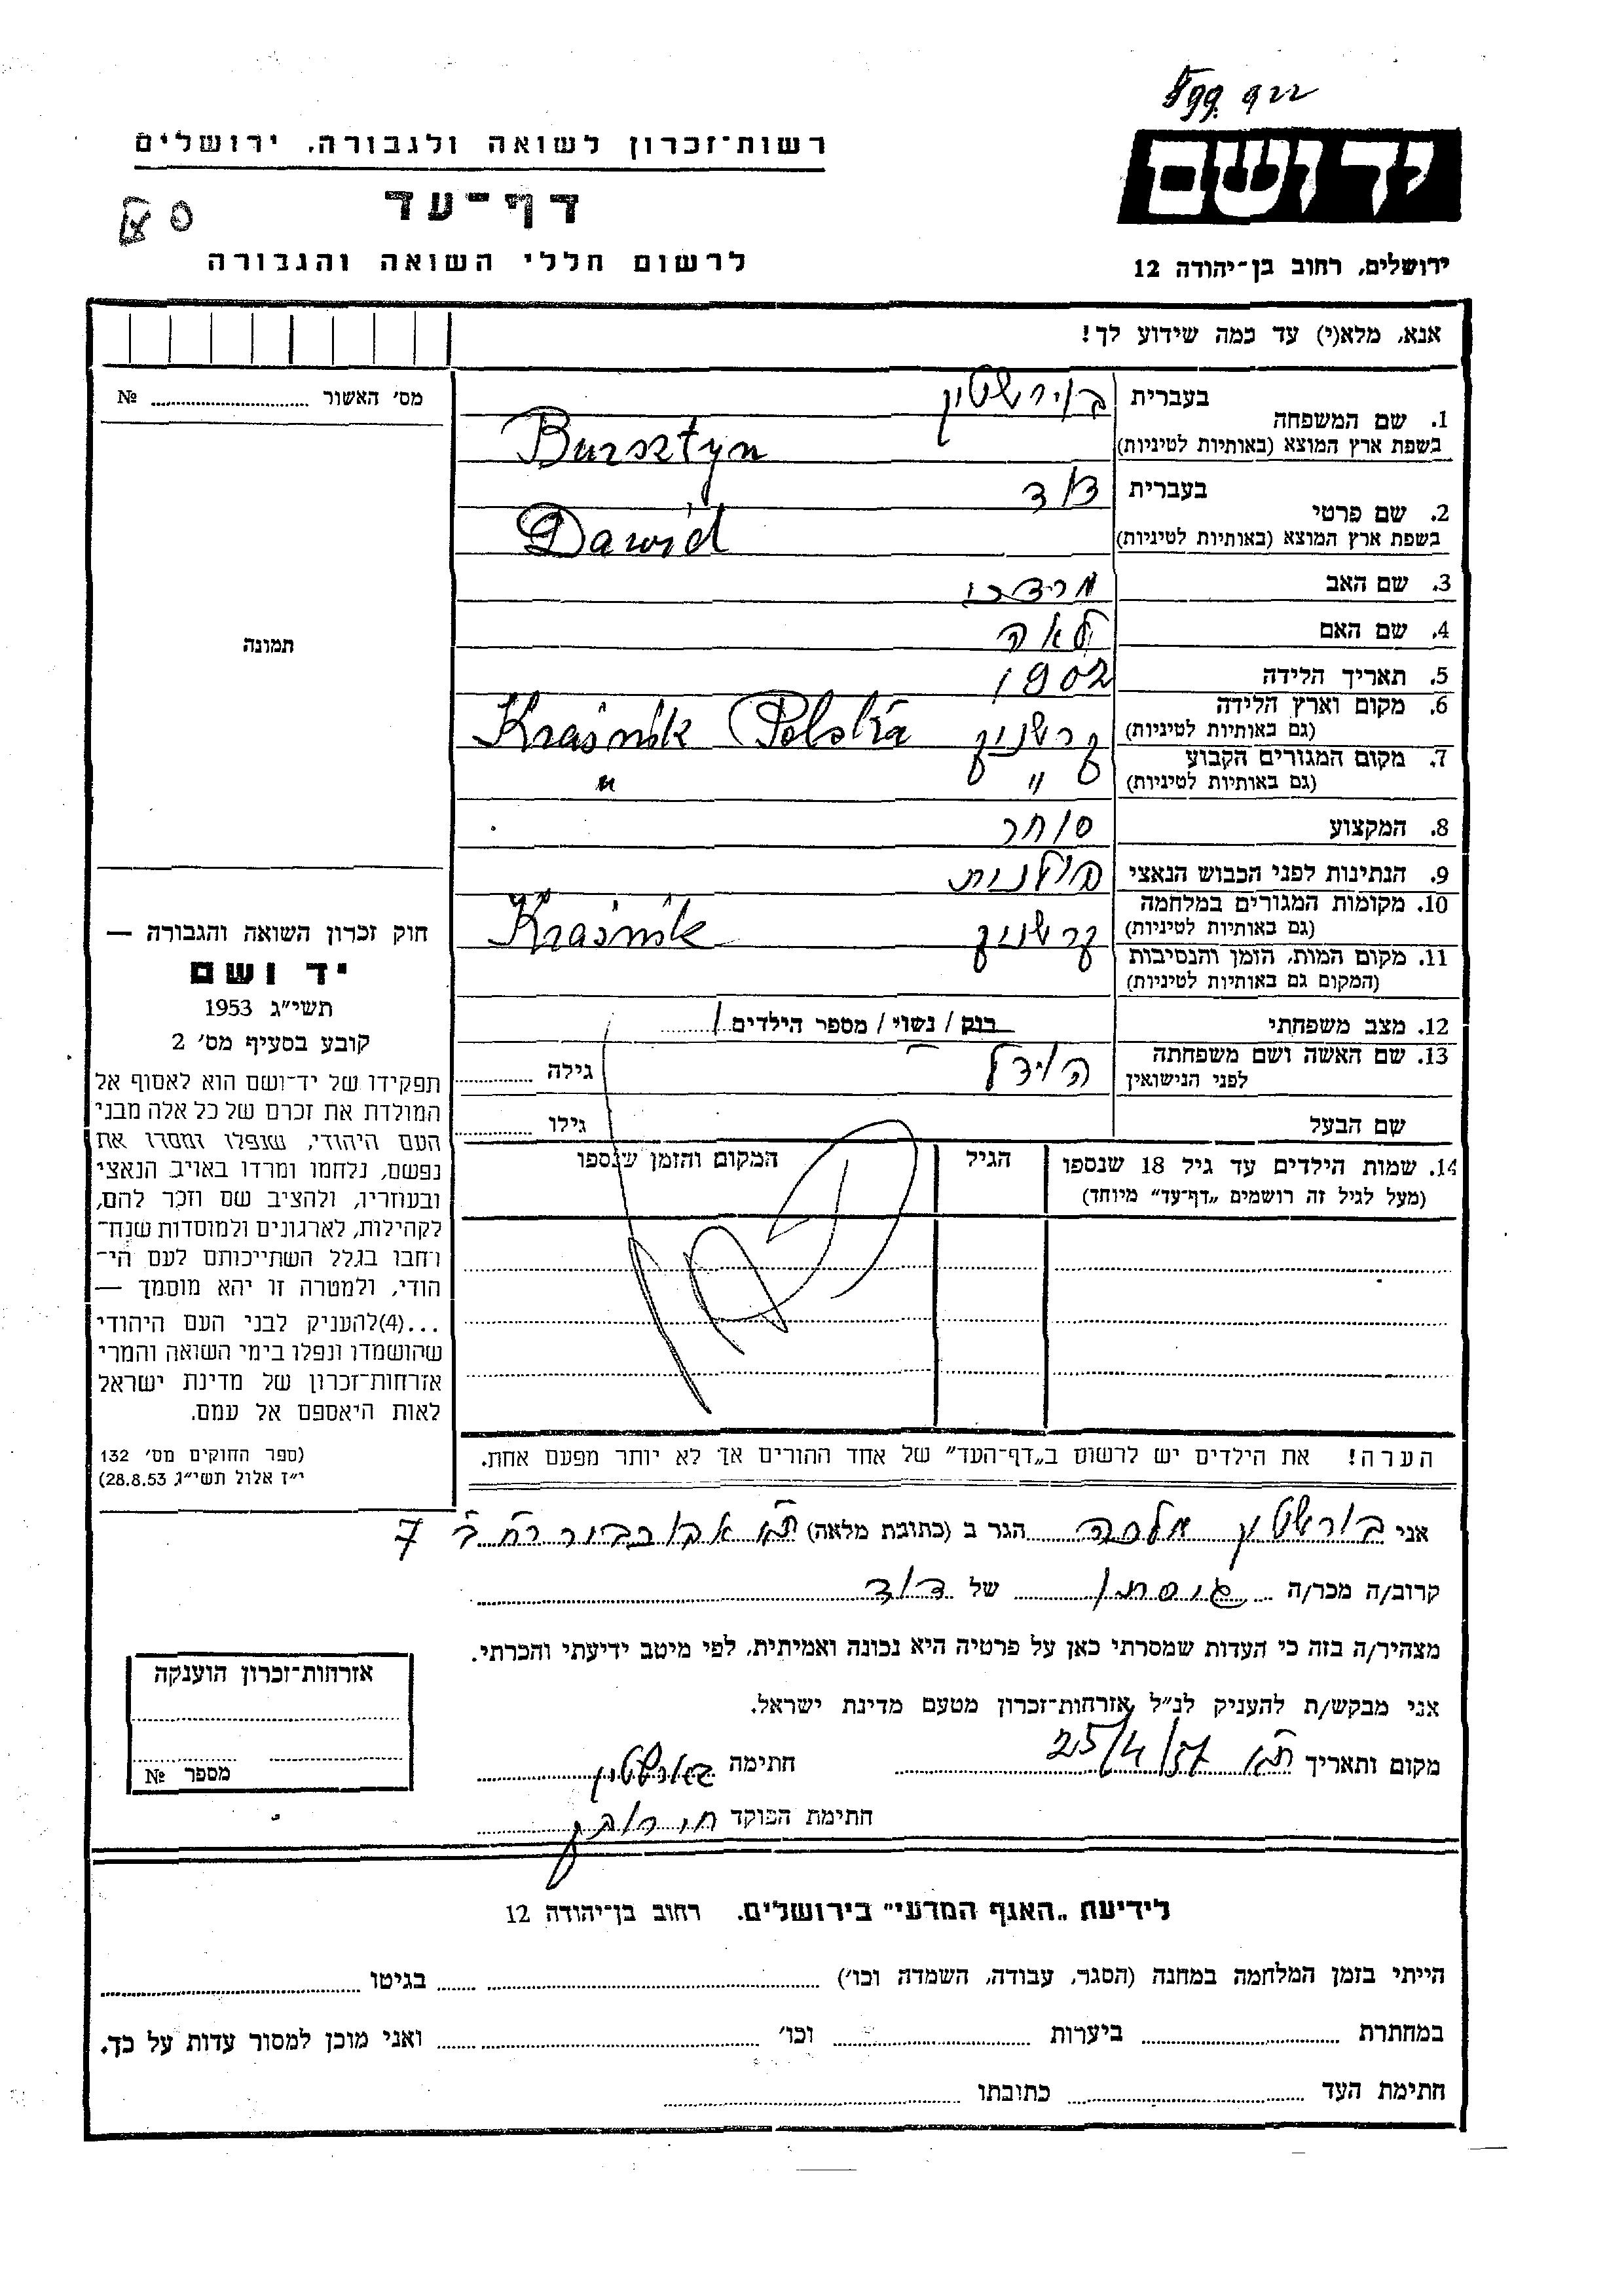 רשות־זכרון לשואה ולגבורה, ירושלים
יד ושם
דף־עד
לרשום חללי השואה והגבורה
ירושלים, רחוב בן־יהודה 12
אנא, מלא(י) עד כמה שידוע לך!
מס׳ האשור № 
1. שם המשפחה
בעברית בורשטין
בשפת ארץ המוצא (באותיות לטיניות) Bursztyn
2. שם פרטי
בעברית דוד
בשפת ארץ המוצא (באותיות לטיניות) Dawid
3. שם האב מרדכי
4. שם האם לאה
5. תאריך הלידה 1902
6. מקום וארץ הלידה
(גם באותיות לטיניות) קרשניק Kraśnik Polska
7. מקום המגורים הקבוע
(גם באותיות לטיניות) " "
8. המקצוע סוחר
9. הנתינות לפני הכבוש הנאצי פולנית
10. מקומות המגורים במלחמה
(גם באותיות לטיניות) קרשניק Kraśnik
11. מקום המות, הזמן והנסיבות
(המקום גם באותיות לטיניות)
12. מצב משפחתי רוק / נשוי / מספר הילדים
13. שם האשה ושם משפחתה
לפני הנישואין גילה
שם הבעל גילו
14. שמות הילדים עד גיל 18 שנספו
(מעל לגיל זה רושמים „דף־עד״ מיוחד)
הגיל
המקום והזמן שנספו
תמונה
חוק זכרון השואה והגבורה —
יד ושם
תשי״ג 1953
קובע בסעיף מס׳ 2
תפקידו של יד־ושם הוא לאסוף אל
המולדת את זכרם של כל אלה מבני
העם היהודי, שנפלו ומסרו את
נפשם, נלחמו ומרדו באויב הנאצי
ובעוזריו, ולהציב שם וזכר להם,
לקהילות, לארגונים ולמוסדות שנח־
רחבו בגלל השתייכותם לעם הי־
הודי, ולמטרה זו יהא מוסמך —
...(4)להעניק לבני העם היהודי
שהושמדו ונפלו בימי השואה והמרי
אזרחות־זכרון של מדינת ישראל
לאות היאספם אל עמם.
(ספר החוקים מס׳ 132
י״ז אלול תשי״ג 28.8.53)
הערה! את הילדים יש לרשום ב„דף־העד״ של אחד ההורים אך לא יותר מפעם אחת.
אני בורשטין מלכה הגר ב (כתובת מלאה) ת״א 7
קרוב/ה מכר/ה גיסתו של דוד
מצהיר/ה בזה כי העדות שמסרתי כאן על פרטיה היא נכונה ואמיתית, לפי מיטב ידיעתי והכרתי.
אני מבקש/ת להעניק לנ״ל אזרחות־זכרון מטעם מדינת ישראל.
מקום ותאריך ת״א 25/4/57 חתימה בורשטין
חתימת הפוקד
אזרחות־זכרון הוענקה
מספר №
לידיעת „האגף המדעי״ בירושלים, רחוב בן־יהודה 12
הייתי בזמן המלחמה במחנה (הסגר, עבודה, השמדה וכו׳) בגיטו
במחתרת ביערות וכו׳ ואני מוכן למסור עדות על כך.
חתימת העד כתובתו